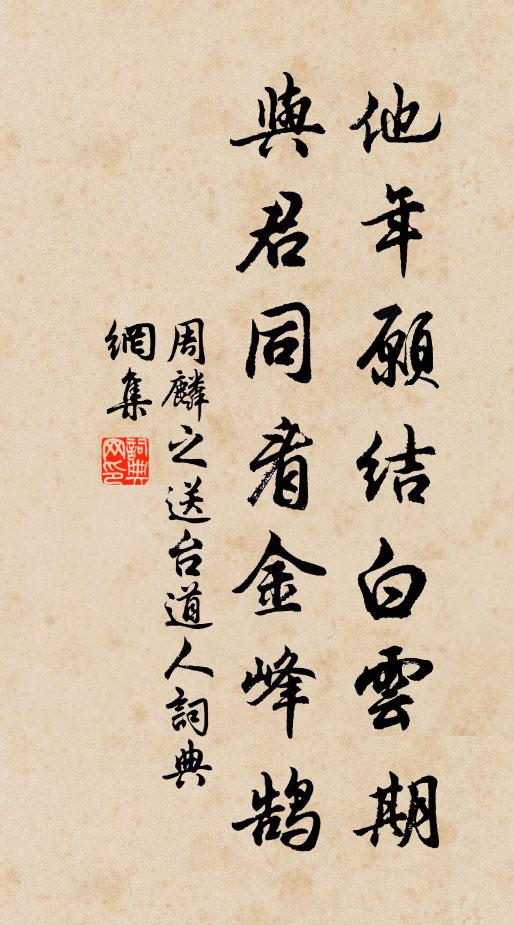 他年願結白雲期
與君同看金峰鵠
周麟之送台道人詞典
網集
詞典网印